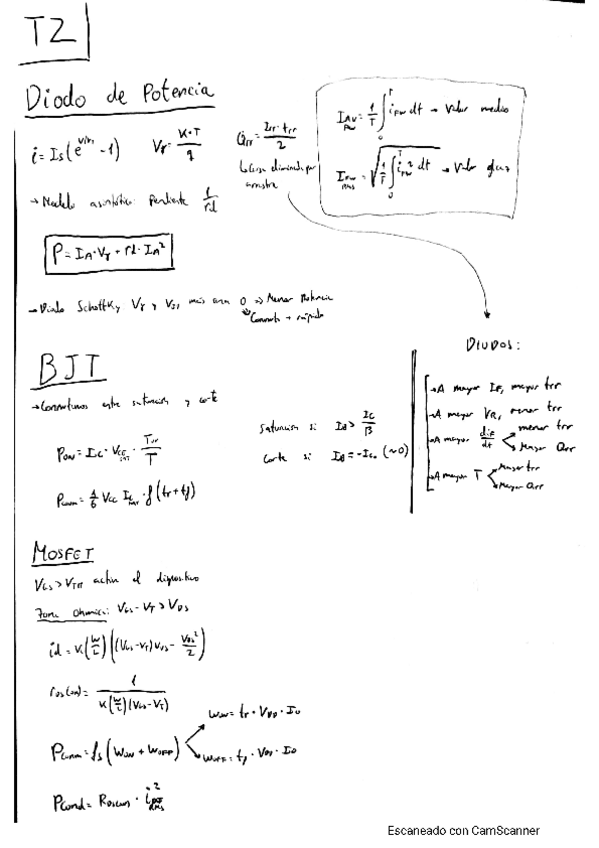 T2
Diodo de Potencia
i = Is(e^(V/VT) - 1)
Vγ = K·T/q
Qrr = Irr·trr/2
↳ Carga eliminada por arrastre
IAV = 1/T ∫₀ᵀ iFW dt → Valor medio
IRMS = √(1/T ∫₀ᵀ iFW² dt) → Valor eficaz
→ Modelo asintótico: Pendiente 1/rd
P = IA·Vγ + rd·IA²
→ Diodo Schottky Vγ y más cerca 0 => Menor Potencia
↳ Conmuta + rápido
DIODOS:
→ A mayor IF, mayor trr
→ A mayor VR, menor trr
→ A mayor diF/dt menor trr
Mayor Qrr
→ A mayor T Mayor trr
Mayor Qrr
BJT
→ Conmutamos entre saturación y corte
PON = IC·VCE SAT · TON/T
Saturación si IB > IC/β
Corte si IB = -ICo (~0)
f(tr + tf)
MOSFET
VGS > VTH activa el dispositivo
Zona Ohmica: VGS - VT > VDS
id = K(W/L)((VGS - VT)VDS - VDS²/2)
rDS(on) = 1/(K(W/L)(VGS - VT))
Pconm = fs(WON + WOFF)
WON = tr · VDD · Io
WOFF = tf · VDD · Io
Pcond = RDS(on) · i² RMS
Escaneado con CamScanner